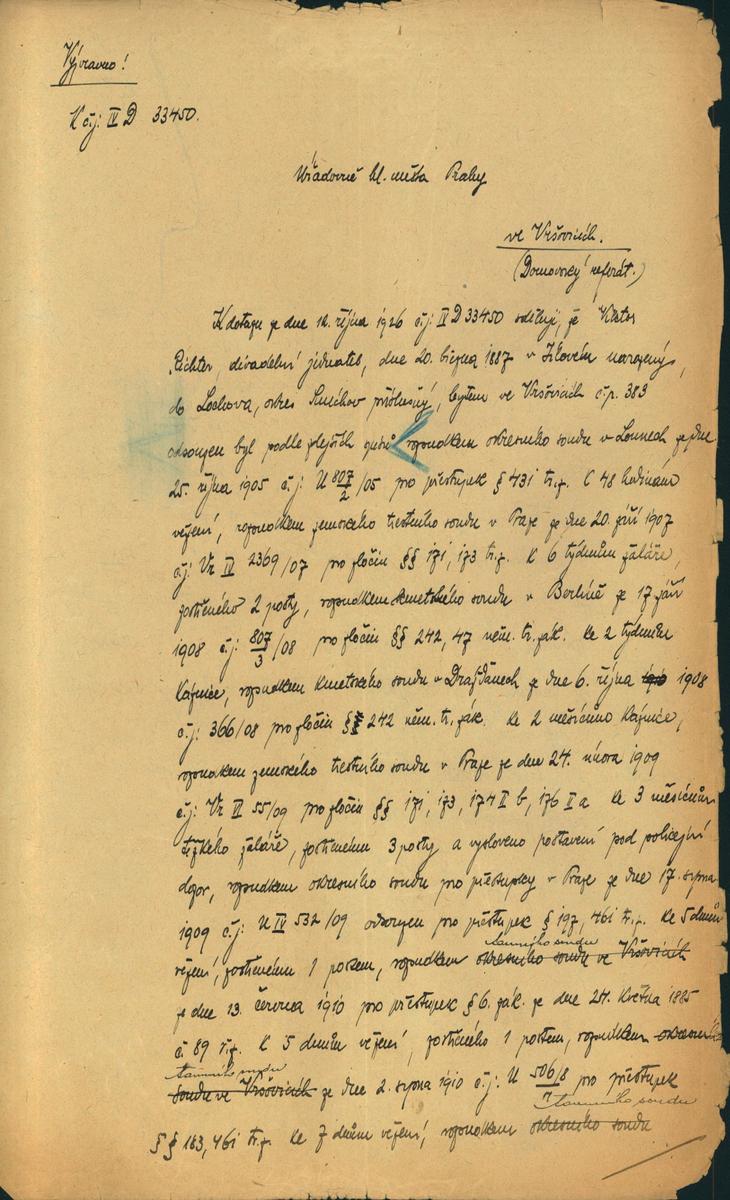 Vypraveno!
K čj: IV D 33450.
Úřadovně hl. města Prahy
ve Vršovicích.
(Domovský referát.)
K dotazu ze dne 12. října 1926 čj: IV D 33450 sděluji, že Viktor
Richter, divadelní jednatel, dne 20. března 1887 v narozený,
do Lochova, okres Smíchov příslušný, bytem ve Vršovicích č.p. 383
odsouzen byl podle zdejších rozsudkem okresního soudu v Lounech ze dne
25. října 1905 čj: U 807/2 /05 pro přestupek § 431 tr.z. k 48 hodinám
vězení, rozsudkem zemského trestního soudu v Praze ze dne 20. září 1907
čj: Vr IV 2369/07 pro zločin §§ 171, 173 tr.z. k 6 týdnům žaláře,
zostřeného 2 posty, rozsudkem kmetského soudu v Berlíně ze 17 září
1908 čj: 807/3 /08 pro zločin §§ 242, 47 něm. tr. zák. ke 2 týdnům
káznice, rozsudkem kmetského soudu v Drážďanech ze dne 6. října 1910 1908
čj: 366/08 pro zločin § 242 něm. tr. zák. ke 2 měsícům káznice,
rozsudkem zemského trestního soudu v Praze ze dne 24. února 1909
čj: Vr IV 55/09 pro zločin §§ 171, 173, 174 II b, 176 II a ke 3 měsícům
těžkého žaláře, zostřenému 3 posty a vysloveno postavení pod policejní
dozor, rozsudkem okresního soudu pro přestupky v Praze ze dne 17. srpna
1909 čj: U IV 532/09 odsouzen pro přestupek § 197, 461 tr.z. ke 5 dnům
tamního soudu
vězení, zostřenému 1 postem, rozsudkem okresního soudu ve Vršovicích
ze dne 13. června 1910 pro přestupek § 6. zák. ze dne 24. května 1885
č 89 ř.z. k 5 dnům vězení, zostřeného 1 postem, rozsudkem okresního
tamního soudu
soudu ve Vršovicích ze dne 2. srpna 1910 čj: U 506/8 pro přestupek
tamního soudu
§§ 183, 461 tr.z. ke 7 dnům vězení, rozsudkem okresního soudu